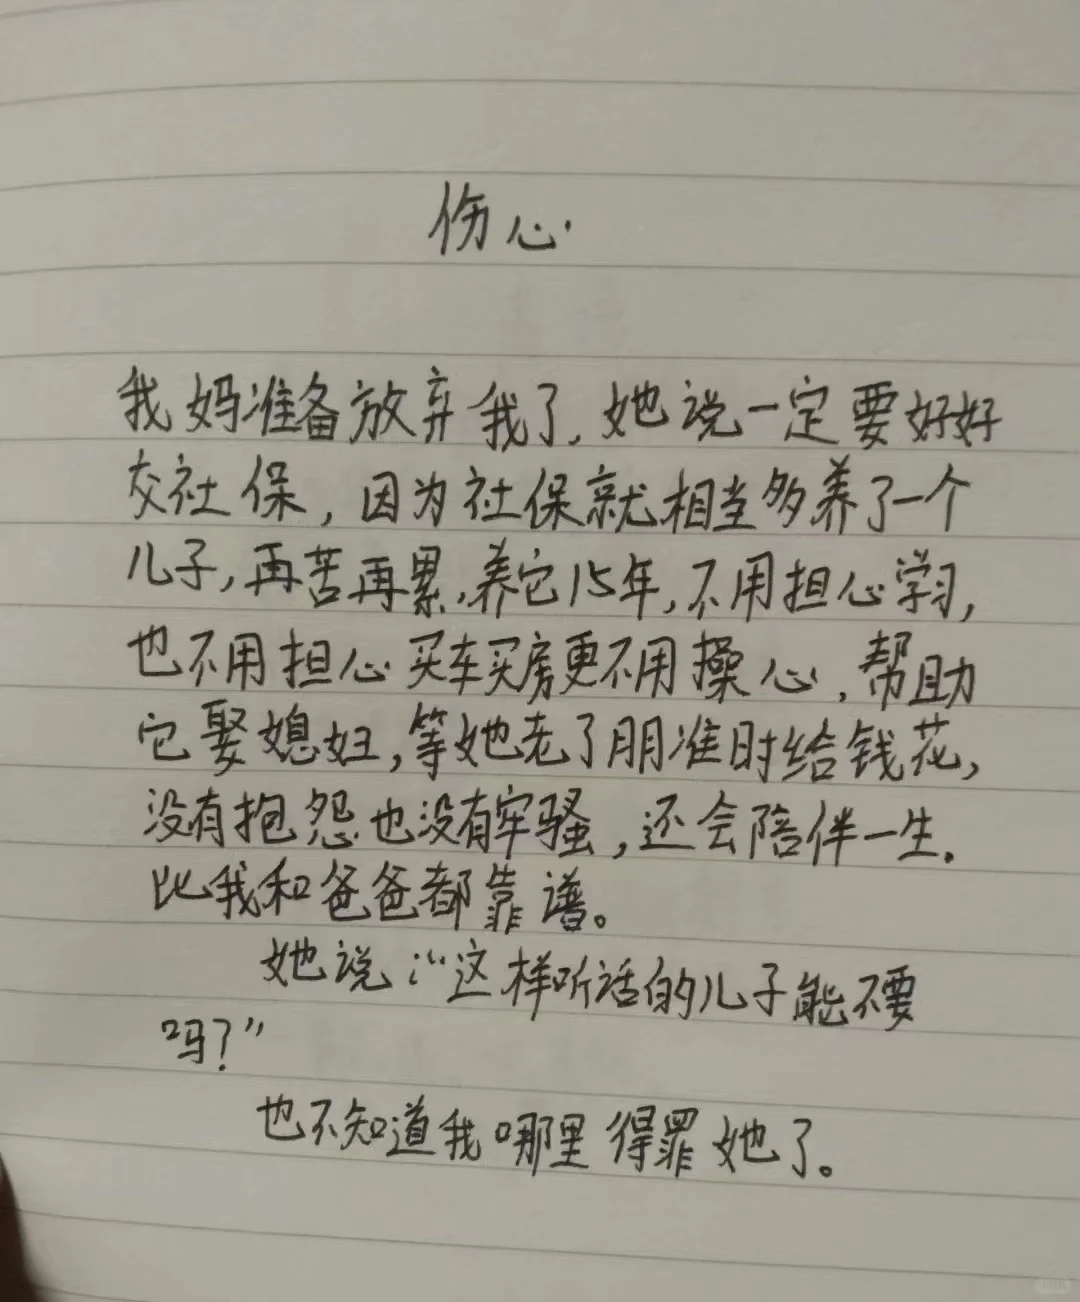 伤心.
我妈准备放弃我了,她说一定要好好
交社保,因为社保就相当多养了一个
儿子,再苦再累,养它15年,不用担心学习,
也不用担心买车买房更不用操心,帮助
它娶媳妇,等她老了月月准时给钱花,
没有抱怨也没有牢骚,还会陪伴一生.
比我和爸爸都靠谱。
她说:“这样听话的儿子能不要
吗?”
也不知道我哪里得罪她了。